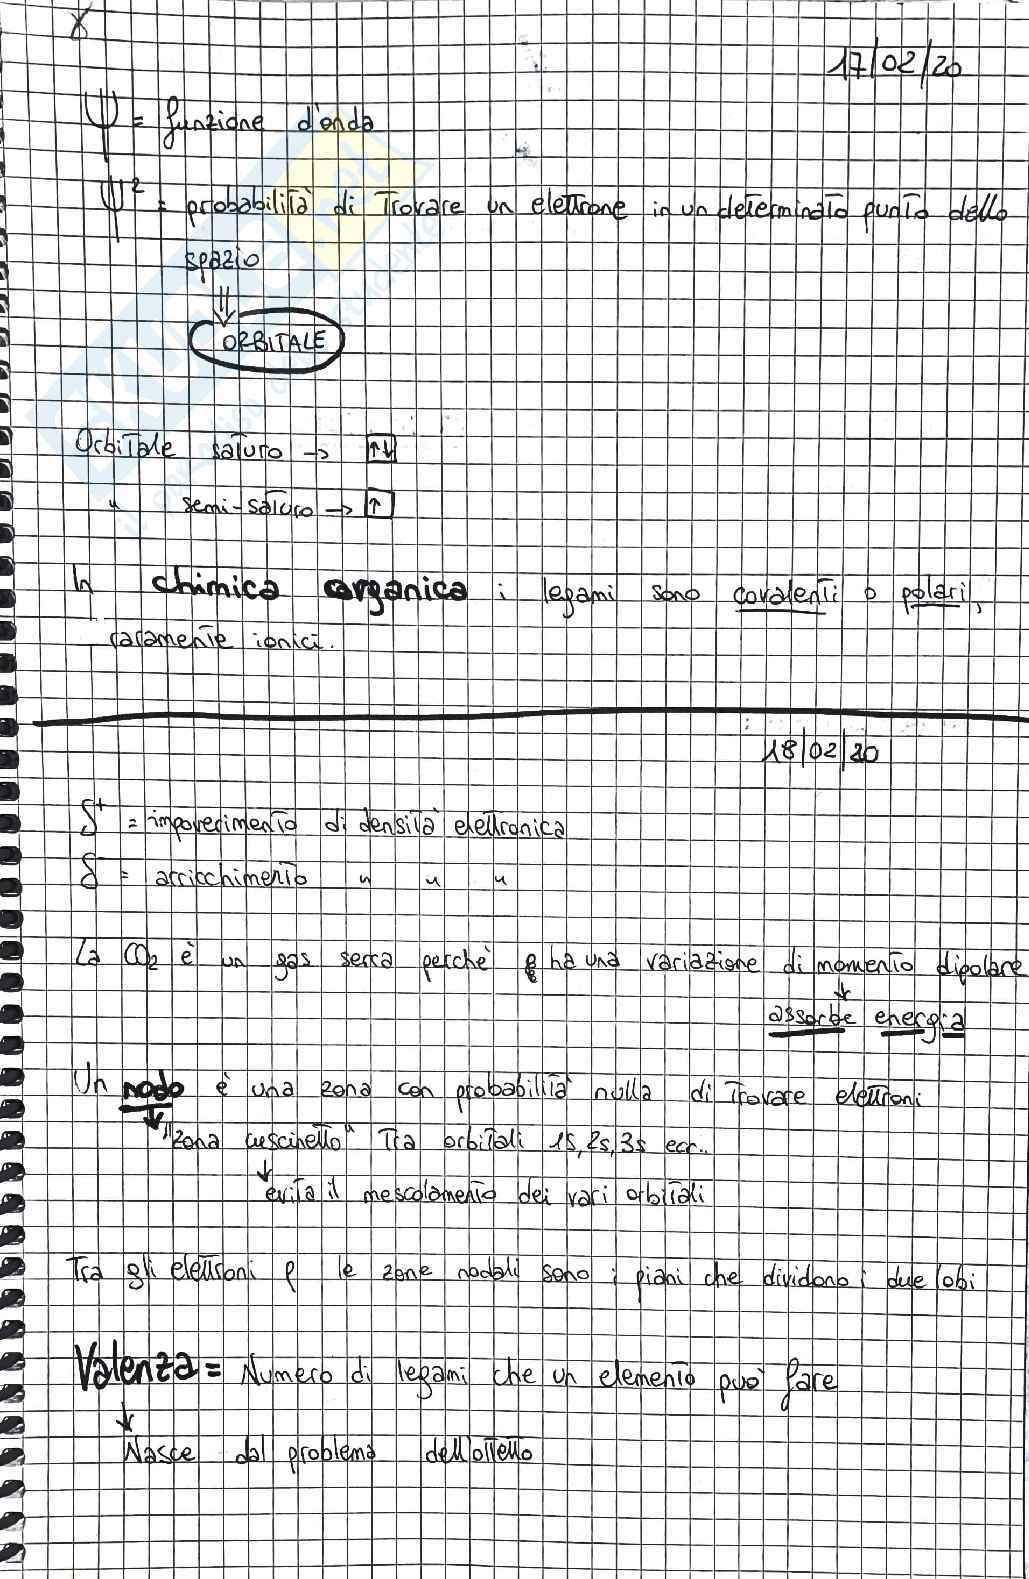 17/02/20
Ψ = funzione d'onda
Ψ² = probabilità di trovare un elettrone in un determinato punto dello
spazio
⇓
ORBITALE
Orbitale saturo → ↑↓
" semi-saturo → ↑
In chimica organica i legami sono covalenti o polari,
raramente ionici.
18/02/20
δ⁺ = impoverimento di densità elettronica
δ⁻ = arricchimento " " "
La CO₂ è un gas serra perchè ha una variazione di momento dipolare
↓
assorbe energia
Un nodo è una zona con probabilità nulla di trovare elettroni
↓ "zona cuscinetto" tra orbitali 1s, 2s, 3s ecc..
↓ evita il mescolamento dei vari orbitali
Tra gli elettroni p le zone nodali sono i piani che dividono i due lobi
Valenza = Numero di legami che un elemento può fare
↓
Nasce dal problema dell'ottetto